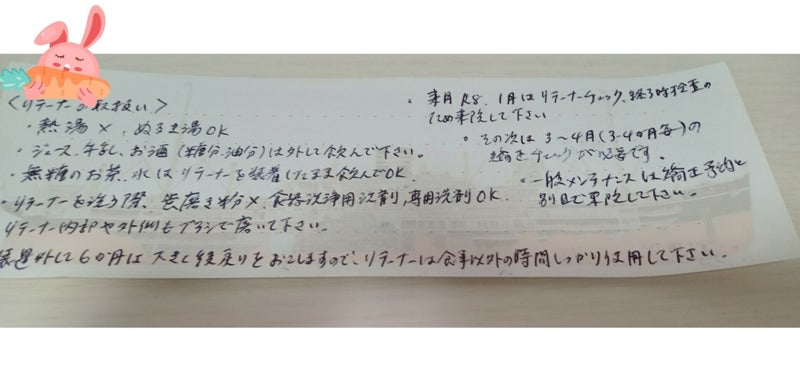 〈リテーナーの取扱い〉
・熱湯×、ぬるま湯OK
・ジュース、牛乳、お酒（糖分、油分）は外して飲んで下さい。
・無糖のお茶、水はリテーナーを装着したまま飲んでOK
・リテーナーを洗う際、歯磨き粉×、食器洗浄用洗剤、専用洗剤OK.
リテーナー内部や外側もブラシで磨いて下さい。
装置外して6か月は大きく後戻りをおこしますので、リテーナーは食事以外の時間しっかり使用して下さい。
・来月R8.1月はリテーナーチェック、終了時検査の
ため来院して下さい
・その次は3~4月(3-4か月毎)の
矯正チェックが必要です。
・一般メンテナンスは矯正予約と
別日で来院して下さい。